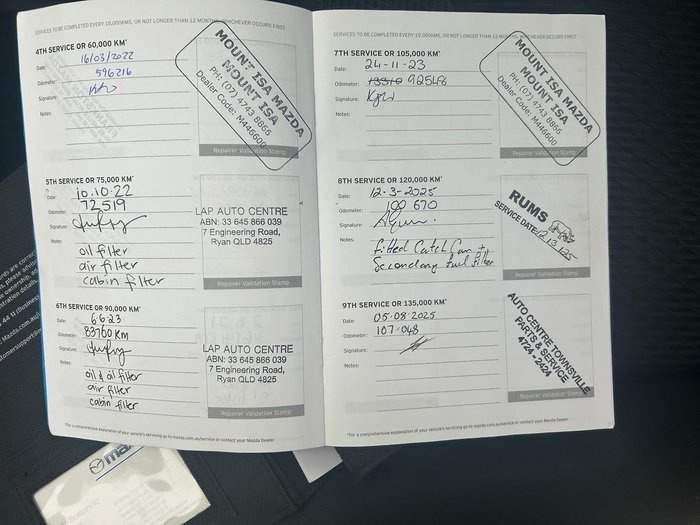 SERVICES TO BE COMPLETED EVERY 15,000KMS, OR NOT LONGER THAN 12 MONTHS, WHICHEVER OCCURS FIRST
4TH SERVICE OR 60,000 KM*
Date: 16/03/2022
Odometer: 596216
Signature:
Notes:
MOUNT ISA MAZDA
MOUNT ISA
PH: (07) 4743 8866
Dealer Code: M446600
Repairer Validation Stamp
5TH SERVICE OR 75,000 KM*
Date: 10.10.22
Odometer: 72519
Signature:
Notes:
oil filter
air filter
cabin filter
LAP AUTO CENTRE
ABN: 33 645 866 039
7 Engineering Road,
Ryan QLD 4825
Repairer Validation Stamp
6TH SERVICE OR 90,000 KM*
Date: 6.6.23
Odometer: 83760 KM
Signature:
Notes:
oil & oil filter
air filter
cabin filter
LAP AUTO CENTRE
ABN: 33 645 866 039
7 Engineering Road,
Ryan QLD 4825
Repairer Validation Stamp
*For a comprehensive explanation of your vehicle's servicing go to mazda.com.au/service or contact your Mazda Dealer
SERVICES TO BE COMPLETED EVERY 15,000KMS, OR NOT LONGER THAN 12 MONTHS, WHICHEVER OCCURS FIRST
7TH SERVICE OR 105,000 KM*
Date: 24-11-23
Odometer: 92548
Signature:
Notes:
MOUNT ISA MAZDA
MOUNT ISA
PH: (07) 4743 8866
Dealer Code: M446600
Repairer Validation Stamp
8TH SERVICE OR 120,000 KM*
Date: 12-3-2025
Odometer: 100 670
Signature:
Notes:
fitted Catch Can +
Secondary fuel filter
RUMS
SERVICE DATE:
Repairer Validation Stamp
9TH SERVICE OR 135,000 KM*
Date: 05-08-2025
Odometer: 107-048
Signature:
Notes:
AUTO CENTRE TOWNSVILLE
PARTS & SERVICE
4724-2424
Repairer Validation Stamp
*For a comprehensive explanation of your vehicle's servicing go to mazda.com.au/service or contact your Mazda Dealer